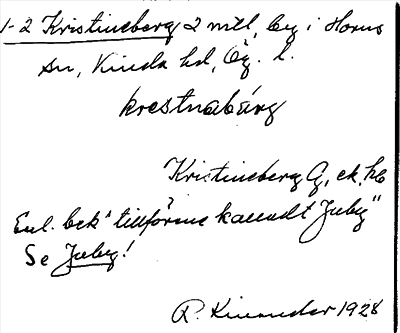 1-2 Kristineberg 2 mtl, by i Horns
sn, Kinda hd, Ög. l.
krestnabärg
Kristineberg G, ek, hb
Enl. bek "tillförene kallendt Juby"
Se Juby!
R. Kinander 1928